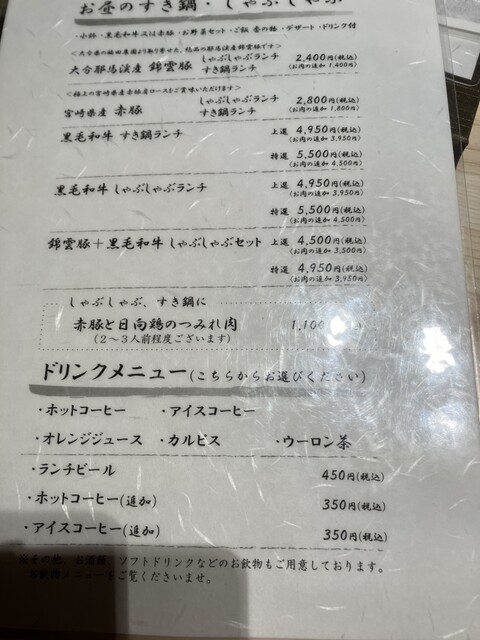 お昼のすき鍋・しゃぶしゃぶ
・小鉢・黒毛和牛又は豚・お野菜セット・ご飯 香の物・デザート・ドリンク付
<大分県の福田農園より取り寄せた、絶品の耶馬渓産錦雲豚です>
大分耶馬渓産 錦雲豚 しゃぶしゃぶランチ すき鍋ランチ 2,400円(税込) (お肉の追加 1,400円)
<極上の宮崎県産赤豚肩ロースとご賞味いただけます>
宮崎県産 赤豚 しゃぶしゃぶランチ すき鍋ランチ 2,800円(税込) (お肉の追加 1,800円)
黒毛和牛 すき鍋ランチ 上選 4,950円(税込) (お肉の追加 3,950円)
特選 5,500円(税込) (お肉の追加 4,500円)
黒毛和牛 しゃぶしゃぶランチ 上選 4,950円(税込) (お肉の追加 3,950円)
特選 5,500円(税込) (お肉の追加 4,500円)
錦雲豚+黒毛和牛 しゃぶしゃぶセット 上選 4,500円(税込) (お肉の追加 3,500円)
特選 4,950円(税込) (お肉の追加 3,950円)
しゃぶしゃぶ、すき鍋に
赤豚と日向鶏のつみれ肉 1,100
(2～3人前程度ございます)
ドリンクメニュー(こちらからお選びください)
・ホットコーヒー ・アイスコーヒー
・オレンジジュース ・カルピス ・ウーロン茶
・ランチビール 450円(税込)
・ホットコーヒー(追加) 350円(税込)
・アイスコーヒー(追加) 350円(税込)
※その他、お酒類、ソフトドリンクなどのお飲物もご用意しております。
お飲物メニューをご覧くださいませ。